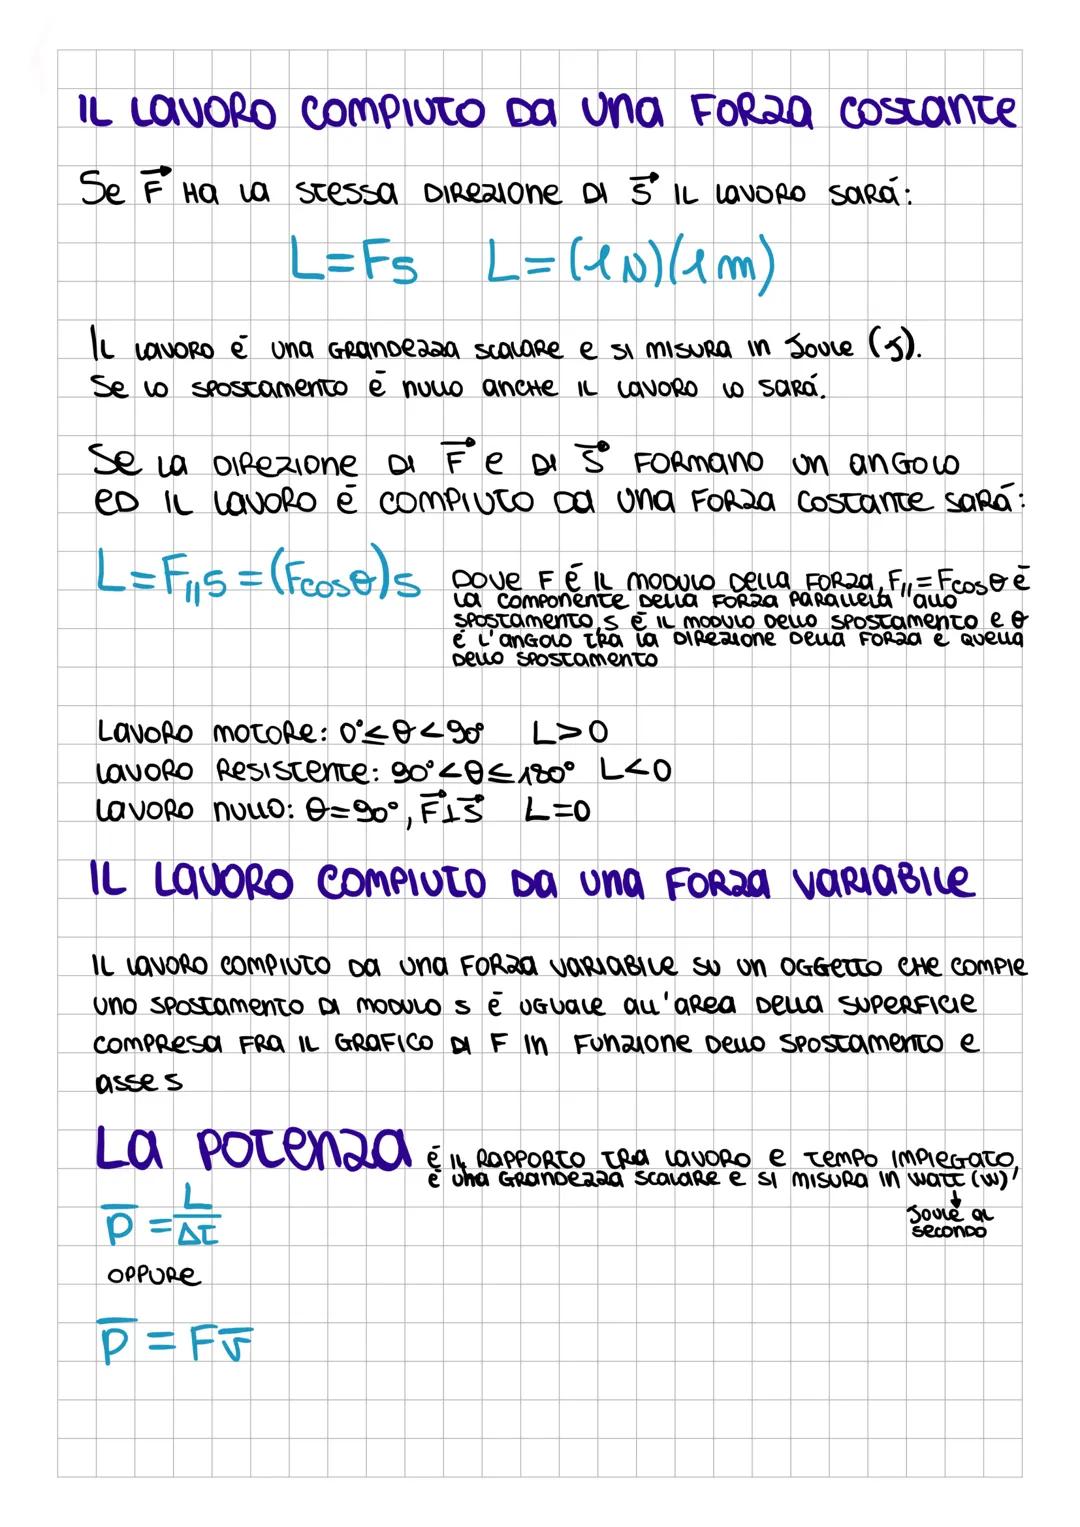 IL LAVORO COMPIUTO DA UNA FORZA COSTANTE
Se F⃗ HA LA STESSA DIREZIONE DI S⃗ IL LAVORO SARÁ:
L=Fs L=(1N)(1m)
IL LAVORO É UNA GRANDEZZA SCALARE E SI MISURA IN JOULE (J).
Se LO SPOSTAMENTO É NULLO ANCHE IL LAVORO LO SARÁ.
Se LA DIREZIONE DI F⃗ E DI S⃗ FORMANO UN ANGOLO
ED IL LAVORO É COMPIUTO DA UNA FORZA COSTANTE SARÁ:
L=F∥s=(Fcosθ)s
DOVE F É IL MODULO DELLA FORZA, F∥=Fcosθ É
LA COMPONENTE DELLA FORZA PARALLELA ALLO
SPOSTAMENTO, S É IL MODULO DELLO SPOSTAMENTO E θ
É L'ANGOLO TRA LA DIREZIONE DELLA FORZA E QUELLA
DELLO SPOSTAMENTO
LAVORO MOTORE: 0°≤θ<90° L>0
LAVORO RESISTENTE: 90°<θ≤180° L<0
LAVORO NULLO: θ=90°, F⃗⊥S⃗ L=0
IL LAVORO COMPIUTO DA UNA FORZA VARIABILE
IL LAVORO COMPIUTO DA UNA FORZA VARIABILE SU UN OGGETTO CHE COMPIE
UNO SPOSTAMENTO DI MODULO S É UGUALE ALL'AREA DELLA SUPERFICIE
COMPRESA FRA IL GRAFICO DI F IN FUNZIONE DELLO SPOSTAMENTO E
ASSE S
LA POTENZA É IL RAPPORTO TRA LAVORO E TEMPO IMPIEGATO,
É UNA GRANDEZZA SCALARE E SI MISURA IN WATT (W)
↓
JOULE AL
SECONDO
P̅ = L/Δt
OPPURE
P̅ = Fv̅